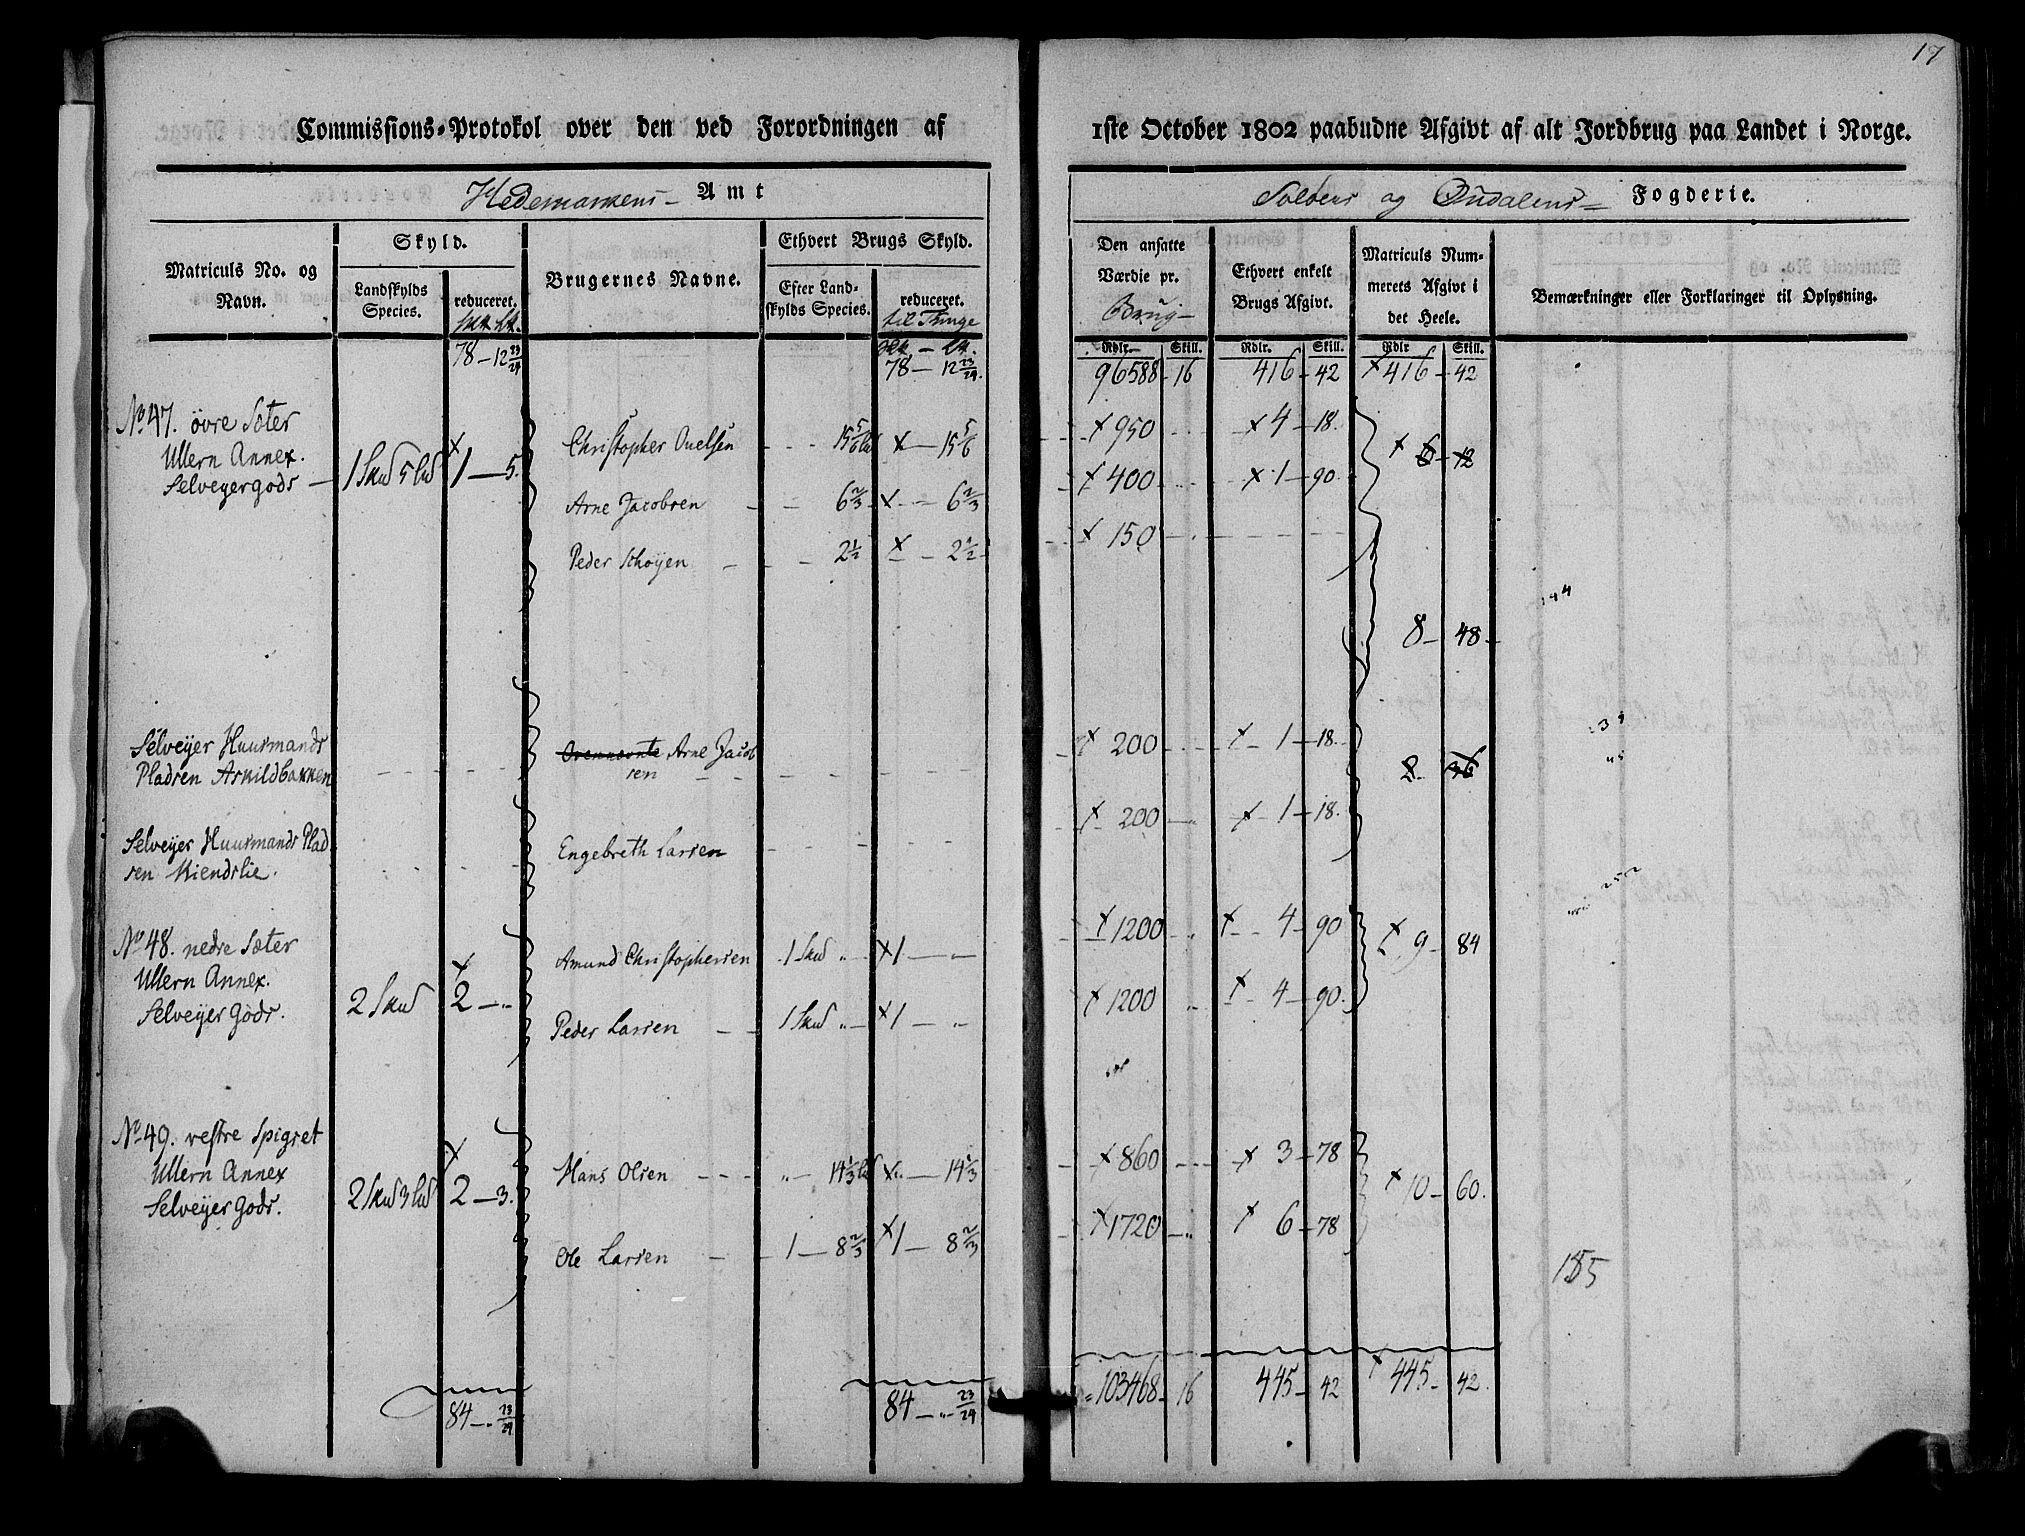 17
Commissions-Protokol over den ved Forordningen af 1ste October 1802 paabudne Afgivt af alt Jordbrug paa Landet i Norge.
Hedemarkens - Amt
Soløers og Oudalens - Fogderie.
Matriculs No. og Navn.
Skyld.
Landskylds Species.
reduceret.
Brugernes Navne.
Ethvert Brugs Skyld.
Efter Landskylds Species.
reduceret.
til Tunge
Den ansatte Værdie pr.
Brug -
Ethvert enkelt Brugs Afgivt.
Matriculs Nummerets Afgivt i det Heele.
Bemærkninger eller Forklaringer til Oplysning.
Rdlr. Skill. Rdlr. Skill. Rdlr Skill.
78 - 12 23/24 78 - 12 23/24 96588 - 16 416 - 42 416 - 42
No 47. övre Sæter
Ullern Annex.
Selveyergods - 1 Skud 5 Lud 1 - 5.
Christopher Ouelsen 15 5/6 Lud 15 5/6 950 4 - 18. 6 - 12
Arne Jacobsen 6 2/3 6 2/3 400 1 - 90.
Peder Schøyen 2 1/2 2 1/2 150
8 - 48
Selveyer Huusmands
Pladsen Askildbakken
Ovennævnte Arne Jacob
sen 200 1 - 18. 2 - 36
Selveyer Huusmands Plad
sen Kiendslie.
Engebreth Larsen 200 1 - 18.
No 48. nedre Sæter
Ullern Annex.
Selveyer Gods. 2 Skud 2 - "
Amund Christophersen 1 Skud " 1 - " 1200 4 - 90 9 - 84
Peder Larsen 1 Skud " 1 - " 1200 4 - 90.
No 49. vestre Spigset
Ullern Annex
Selveyer Gods. 2 Skud 3 Lud 2 - 3.
Hans Olsen " - 14 1/3 Lud " - 14 1/3 860 3 - 78 10 - 60.
Ole Larsen 1 - 8 2/3 1 - 8 2/3 1720 6 - 78
155
84 - " 23/24 84 - " 23/24 103468 - 16 445 - 42 445 - 42.